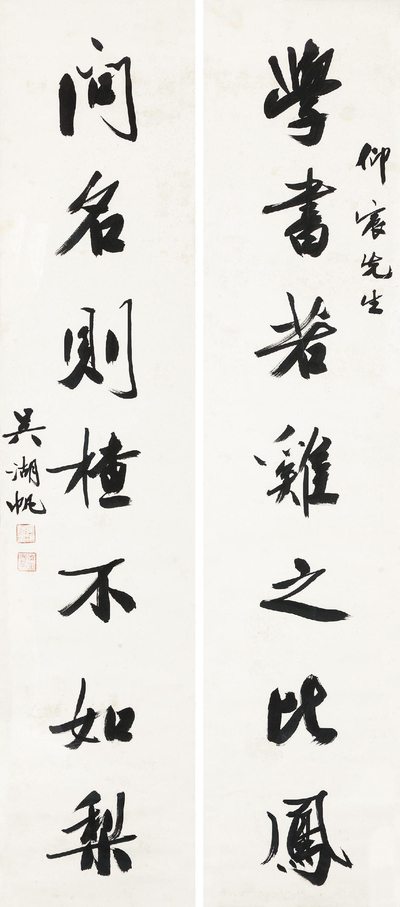 仰宸先生
學書若雞之比鳳
問名則樝不如梨
吳湖帆